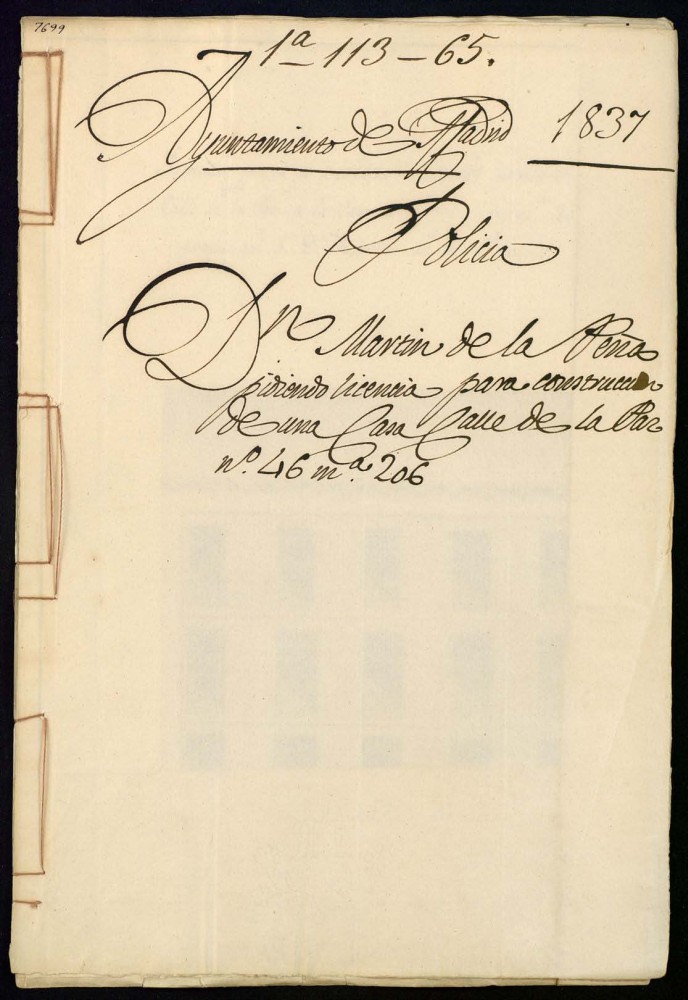 7699
1ª 113-65.
Ayuntamiento de Madrid 1837
Policia
Dn Martin de la Peña
pidiendo licencia para construccion
de una Casa Calle de la Paz
nº. 46 mª. 206